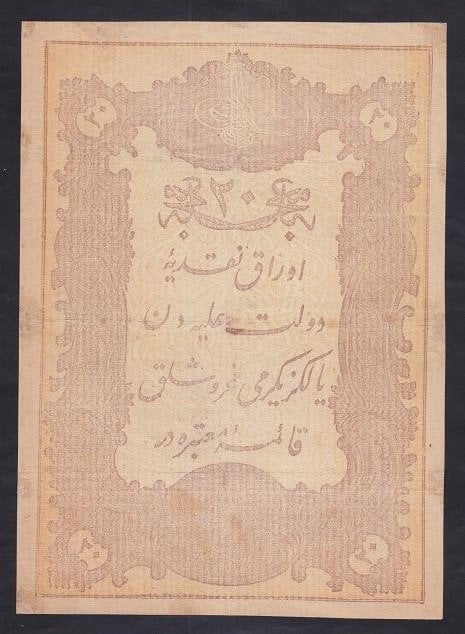 ٢٠ ٢٠
٢٠
اوراق نقدیۀ
دولت علیه دن
یالکز یکرمی غروشلق
قائمۀ معتبره در
٢٠ ٢٠